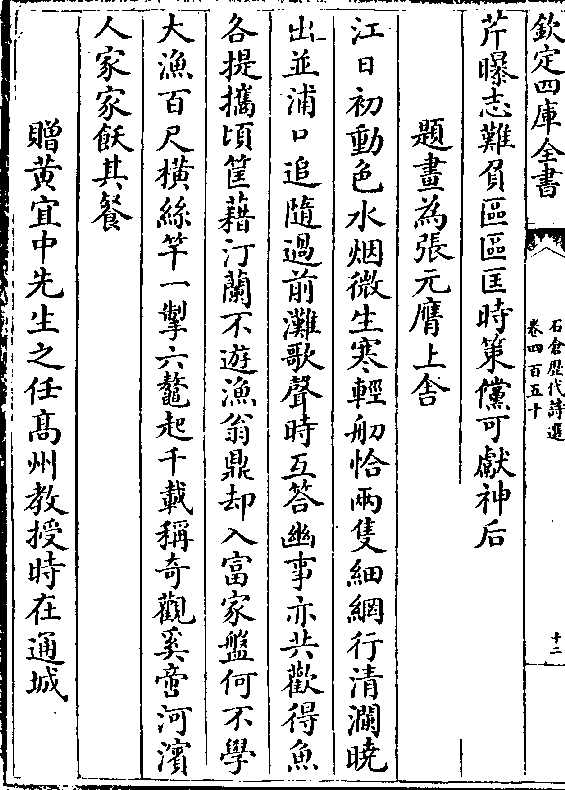 欽定四庫全書
石倉歷代詩選
卷四百五十
十二
芹曝志難負區區匡時策儻可獻神后
題畫為張元膺上舎
江日初動色水烟微生寒輕舠恰兩隻細網行清瀾曉
出並浦口追隨過前灘歌聲時互答幽事亦共歡得魚
各提攜頃筐藉汀蘭不遊漁翁鼎却入富家盤何不學
大漁百尺橫絲竿一掣六鼇起千載稱奇觀奚啻河濱
人家家飫其餐
贈黄宜中先生之任髙州教授時在通城